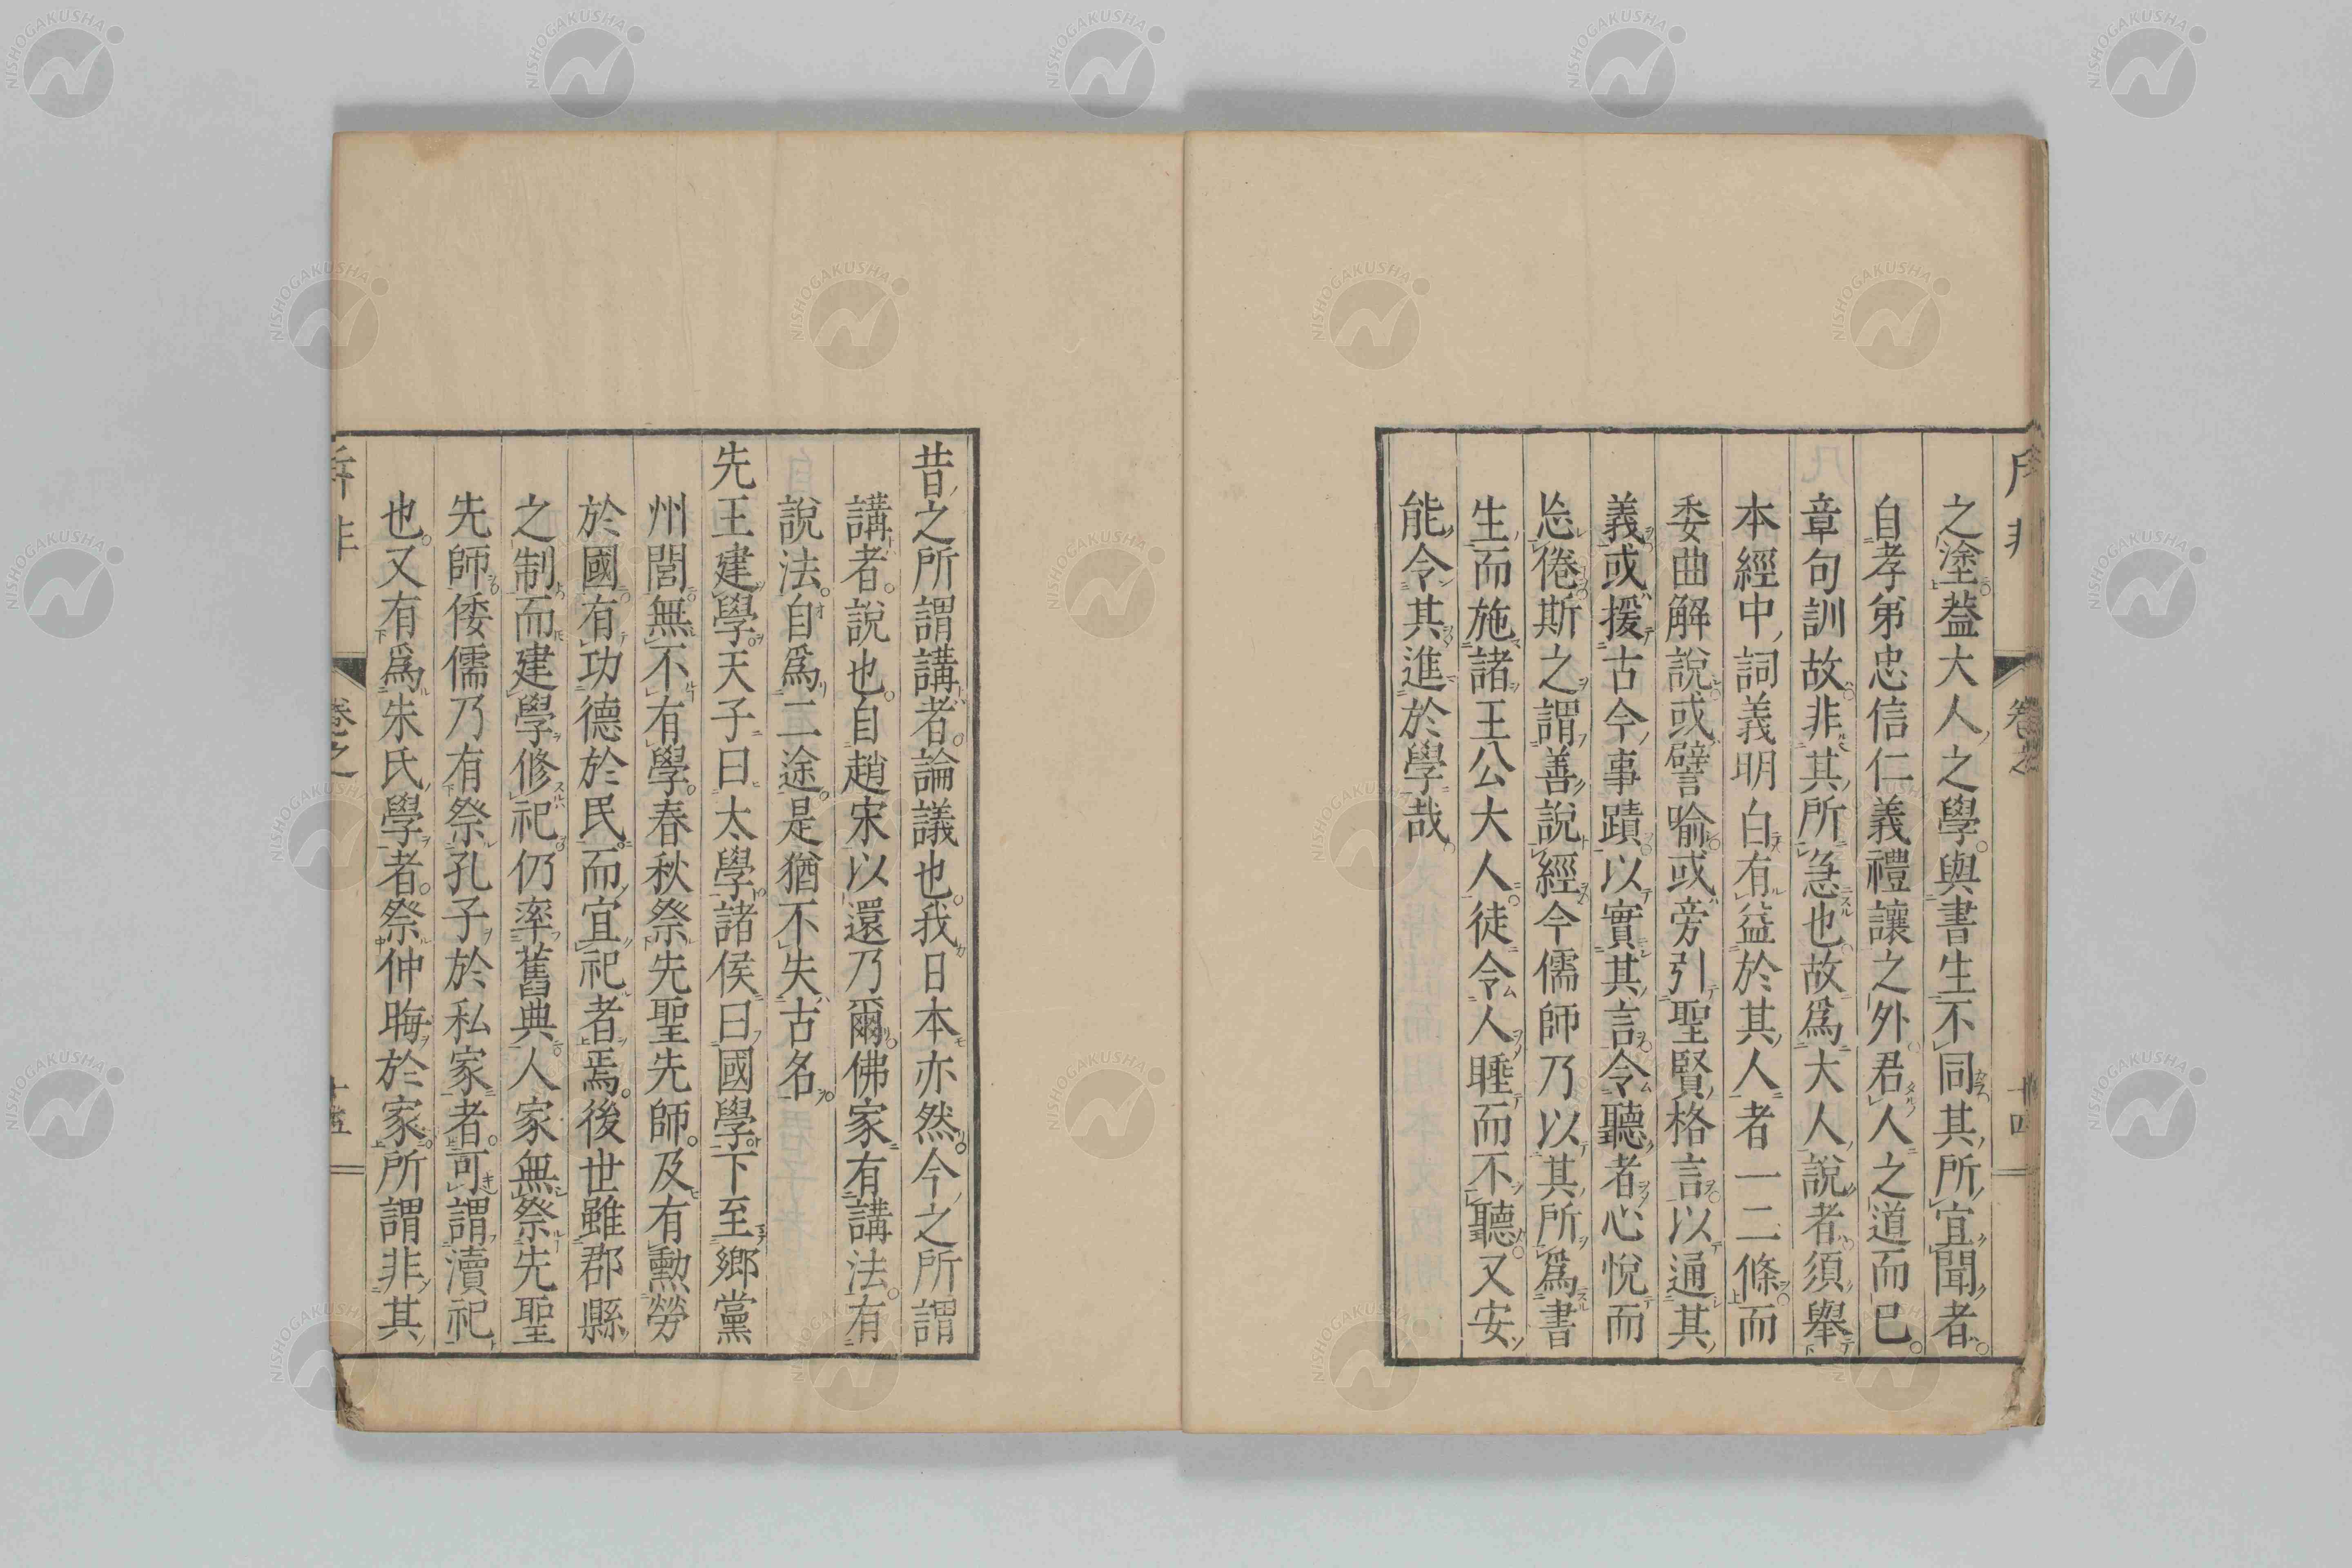 之塗蓋大人之學與書生不同其所宜聞者
自孝弟忠信仁義禮讓之外君人之道而已
章句訓故非其所急也故爲大人說者須舉
本經中詞義明白有益於其人者一二條而
委曲解說或譬喻或旁引聖賢格言以通其
義或援古今事蹟以實其言令聽者心悅而
忘倦斯之謂善說經今儒師乃以其所爲書
生而施諸王公大人徒令人睡而不聽又安
能令其進於學哉
昔之所謂講者論議也我日本亦然今之所謂
講者說也自趙宋以還乃爾佛家有講法有
說法自爲二途是猶不失古名
先王建學天子曰太學諸侯曰國學下至鄉黨
州閭無不有學春秋祭先聖先師及有勳勞
於國有功德於民而宜祀者焉後世雖郡縣
之制而建學修祀仍率舊典人家無祭先聖
先師倭儒乃有祭孔子於私家者可謂瀆祀
也又有爲朱氏學者祭仲晦於家所謂非其
NISHOGAKUSHA